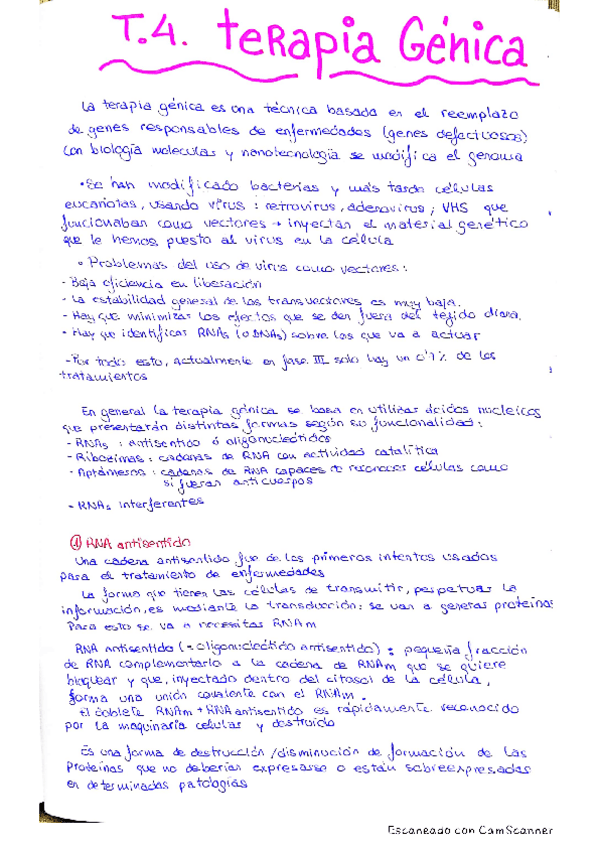 T.4. terapia Génica
La terapia génica es una técnica basada en el reemplazo
de genes responsables de enfermedades (genes defectuosos)
Con biología molecular y nanotecnología se modifica el genoma
• Se han modificado bacterias y más tarde células
eucariotas, usando virus: retrovirus, adenovirus, VHS que
funcionaban como vectores → inyectan el material genético
que le hemos puesto al virus en la célula
• Problemas del uso de virus como vectores:
- Baja eficiencia en liberación
- La estabilidad general de los transvectores es muy baja.
- Hay que minimizar los efectos que se den fuera del tejido diana.
- Hay que identificar RNAs (o DNAs) sobre los que va a actuar
- Por todo esto, actualmente en fase III solo hay un 0'7% de los
tratamientos
En general la terapia génica se basa en utilizar ácidos nucleicos
que presentarán distintas formas según su funcionalidad:
- RNAs: antisentido ó oligonucleótidos
- Ribozimas: cadenas de RNA con actividad catalítica
- Aptámeros: cadenas de RNA capaces de reconocer células como
si fueran anticuerpos
- RNAs interferentes
① RNA antisentido
Una cadena antisentido fue de los primeros intentos usados
para el tratamiento de enfermedades
La forma que tienen las células de transmitir, perpetuar la
información, es mediante la transducción: se van a generar proteínas
Para esto se va a necesitar RNAm
RNA antisentido (= oligonucleótido antisentido): pequeña fracción
de RNA complementario a la cadena de RNAm que se quiere
bloquear y que, inyectado dentro del citosol de la célula,
forma una unión covalente con el RNAm.
El doblete RNAm + RNA antisentido es rápidamente reconocido
por la maquinaria celular y destruido
Es una forma de destrucción / disminución de formación de las
Proteínas que no deberían expresarse o están sobreexpresadas
en determinadas patologías
Escaneado con CamScanner